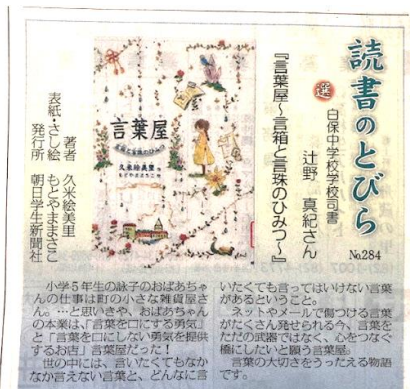 読書のとびら
No.284
選
白保中学校学校司書
辻野　真紀さん
『言葉屋〜言箱と言珠のひみつ〜』
言葉屋
言箱と言珠のひみつ
久米絵美里・作
もとやままさこ・絵
著者　久米絵美里
表紙・さし絵　もとやままさこ
発行所　朝日学生新聞社
小学５年生の詠子のおばあちゃ
んの仕事は町の小さな雑貨屋さ
ん。…と思いきや、おばあちゃん
の本業は、「言葉を口にする勇気」
と「言葉を口にしない勇気を提供
するお店」言葉屋だった！
世の中には、言いたくてもなか
なか言えない言葉と、どんなに言
いたくても言ってはいけない言葉
があるということ。
ネットやメールで傷つける言葉
がたくさん発せられる今、言葉を
ただの武器ではなく、心をつなぐ
橋にしたいと願う言葉屋。
言葉の大切さをうったえる物語
です。